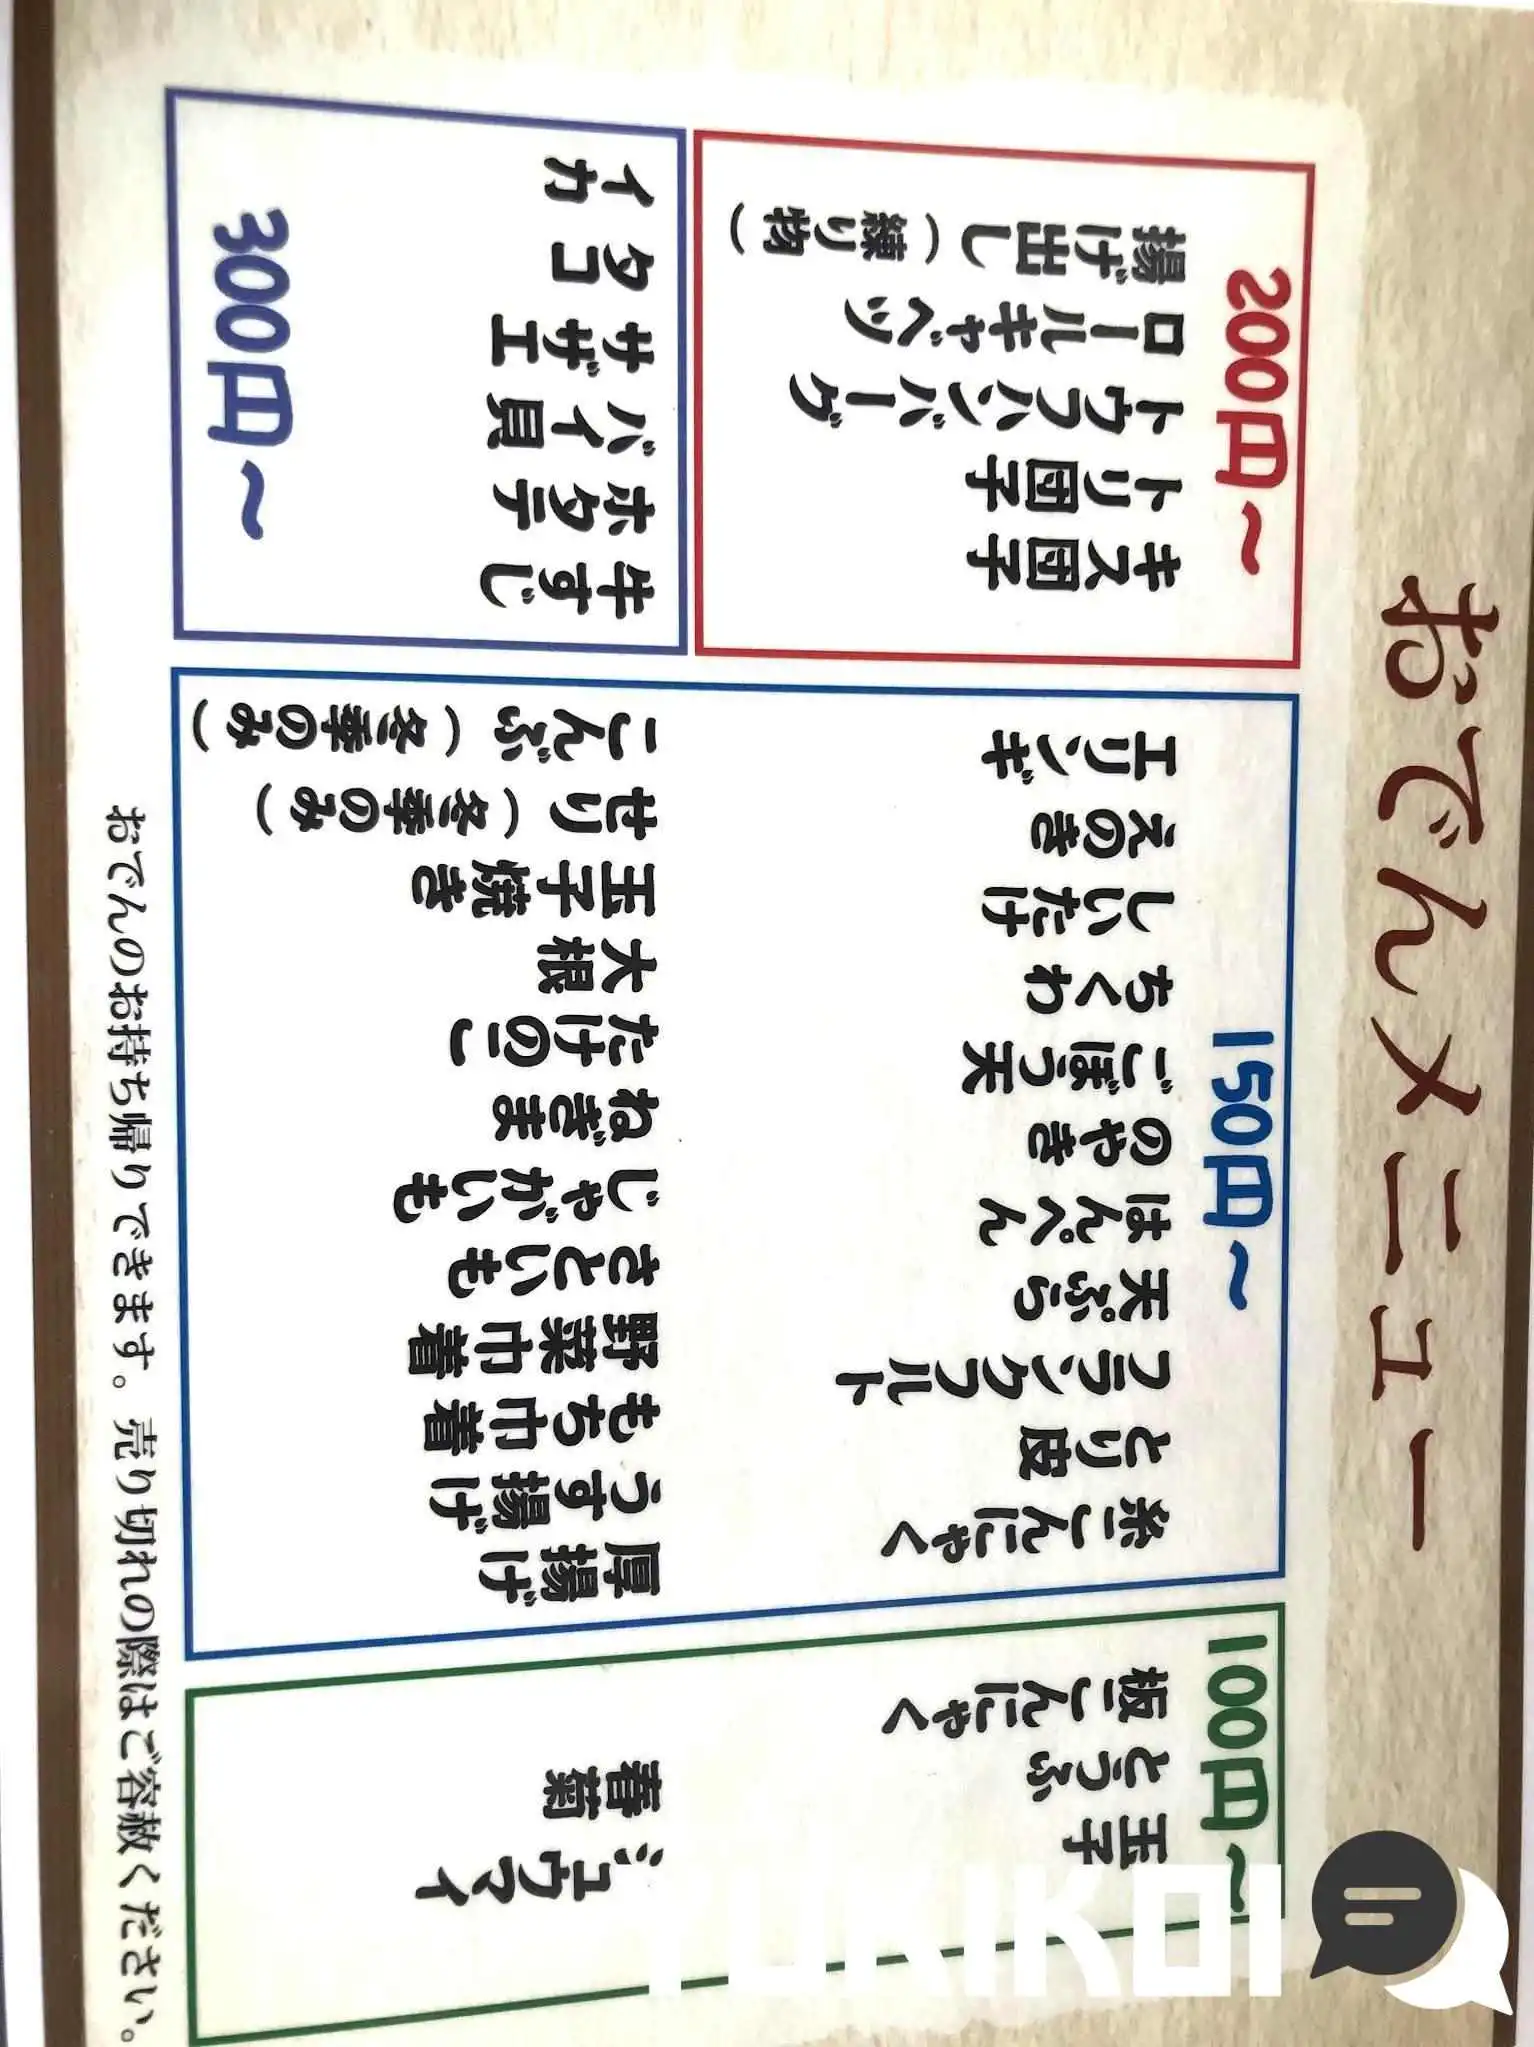 おでんメニュー
100円～
玉子
とうふ
板こんにゃく
シュウマイ
春菊
150円～
糸こんにゃく
とり皮
フランクフルト
天ぷら
はんぺん
のやき
ごぼう天
ちくわ
しいたけ
えのき
エリンギ
厚揚げ
うす揚げ
もち巾着
野菜巾着
さといも
じゃがいも
ねぎま
たけのこ
大根
玉子焼き
せり（冬季のみ）
こんぶ（冬季のみ）
200円～
キス団子
トリ団子
トウフハンバーグ
ロールキャベツ
揚げ出し（練り物）
300円～
牛すじ
ホタテ
バイ貝
サザエ
タコ
イカ
おでんのお持ち帰りできます。売り切れの際はご容赦ください。